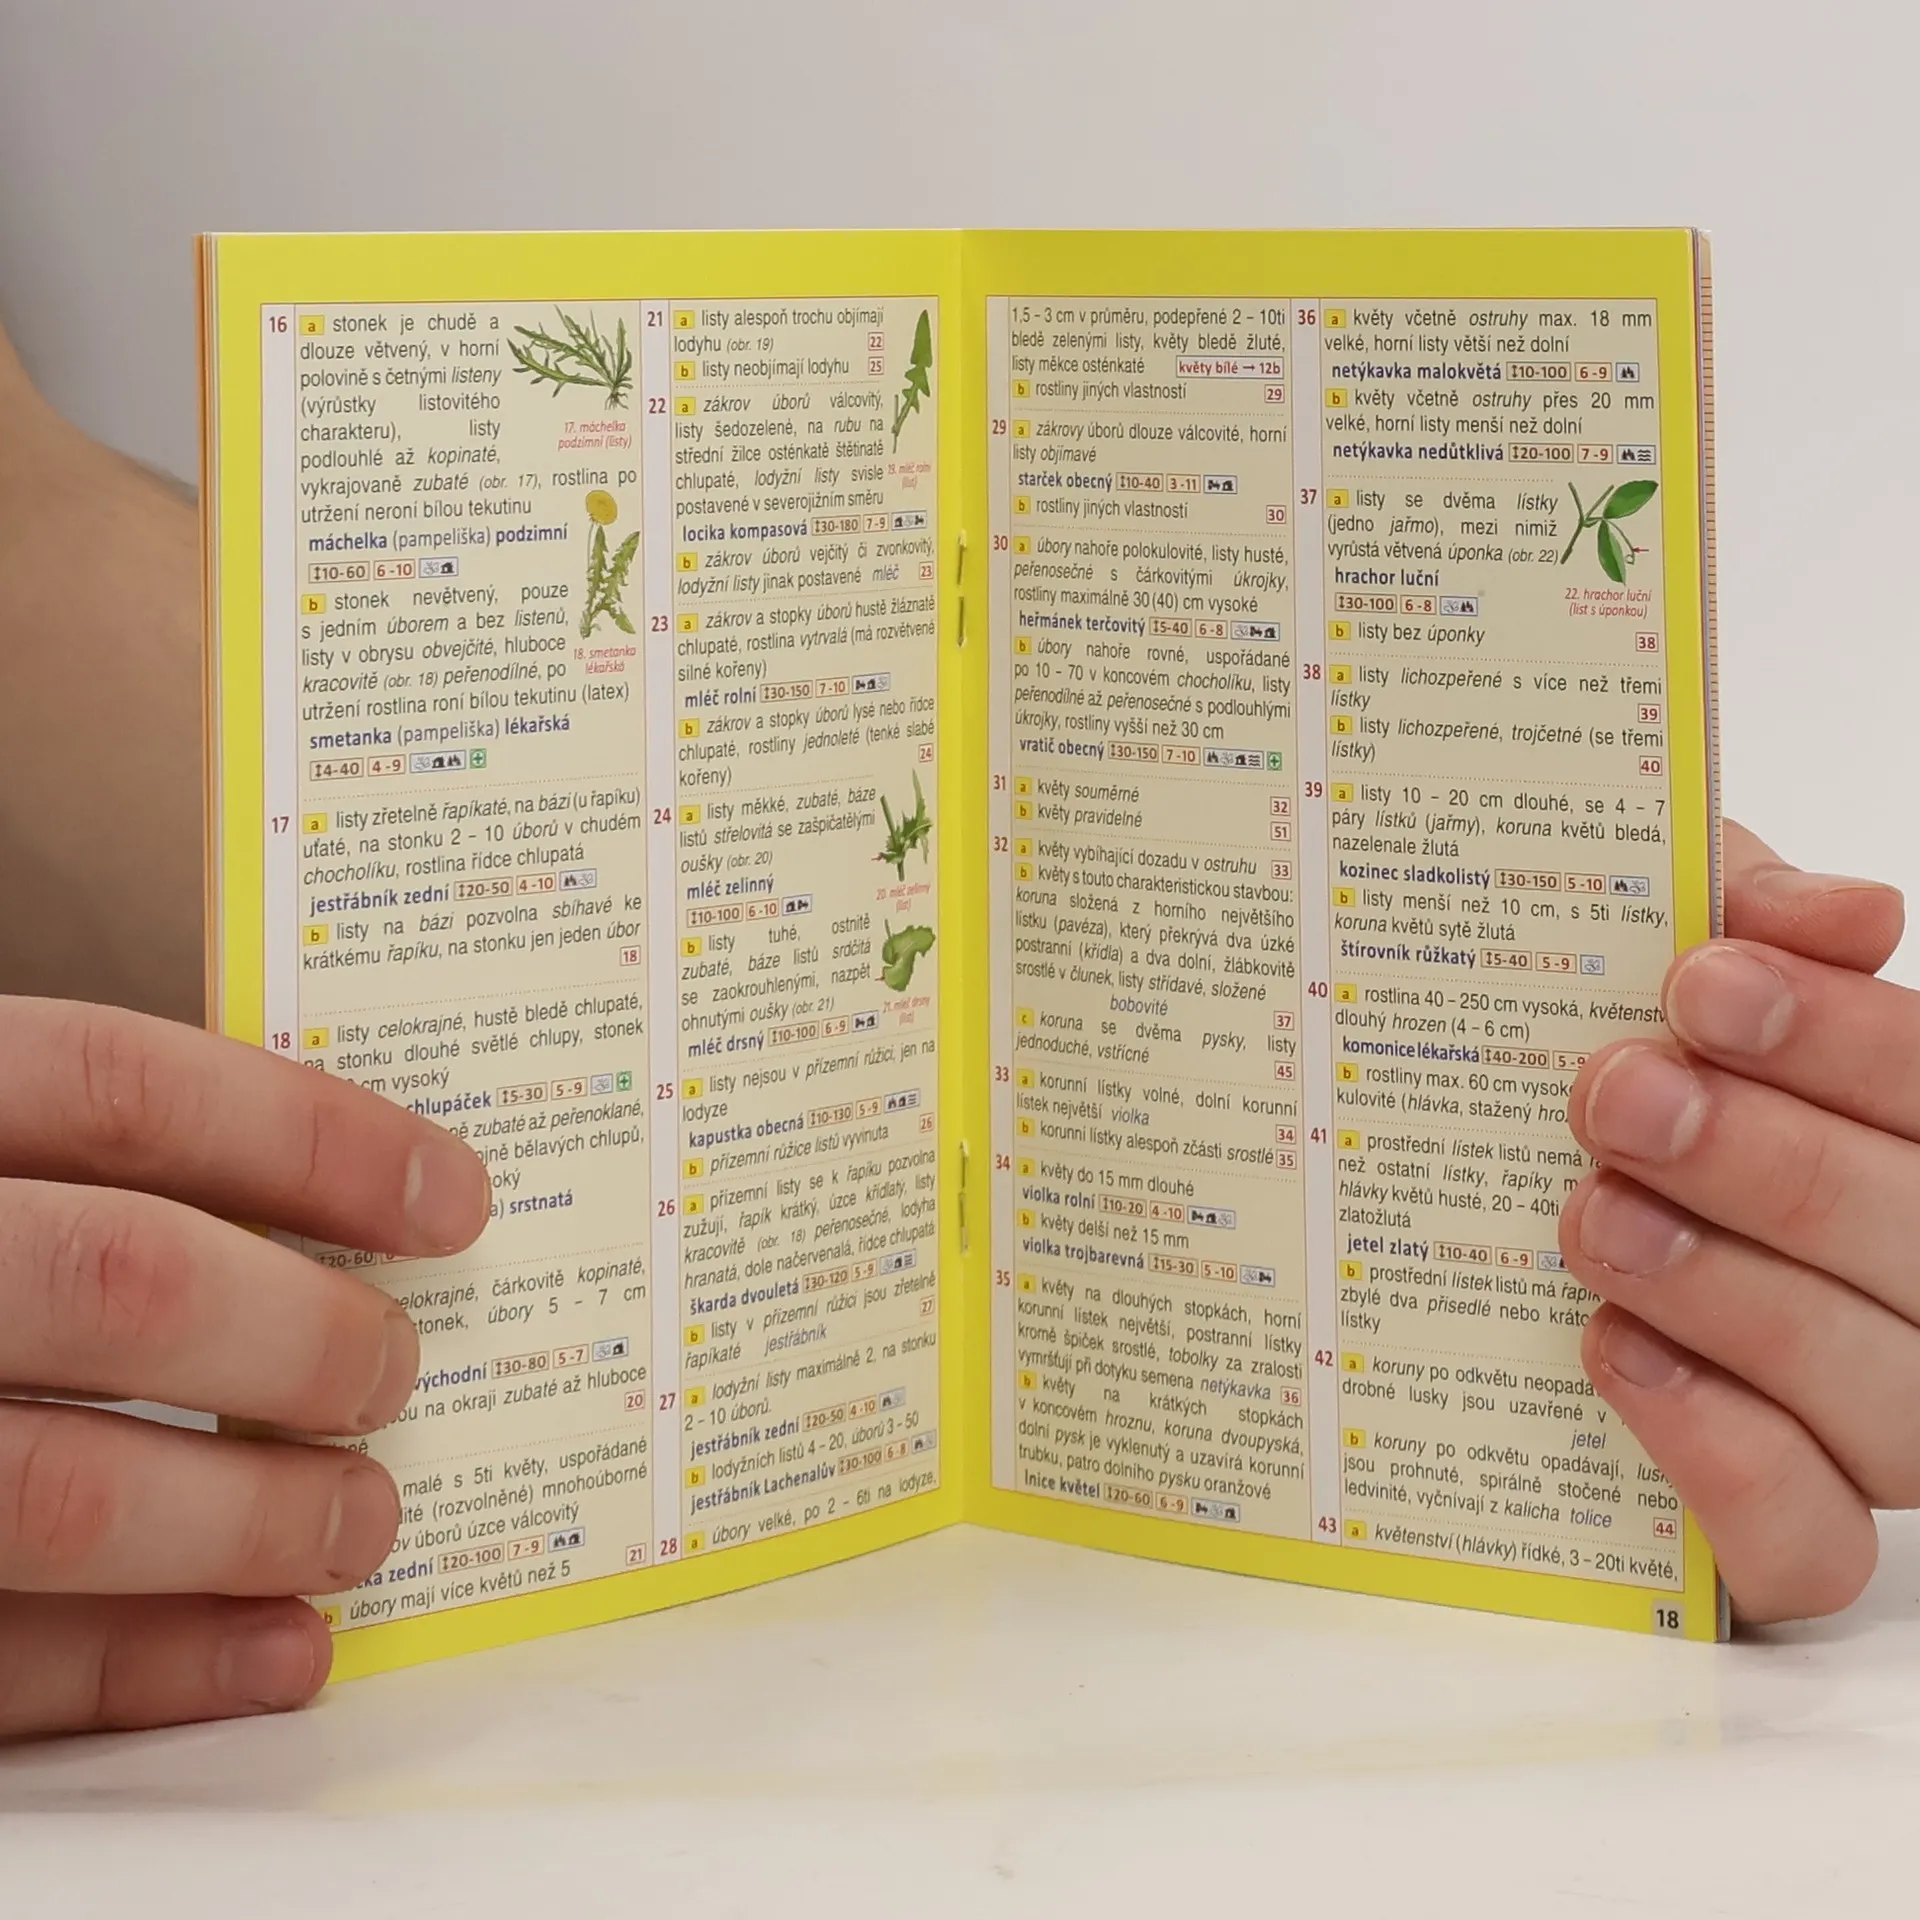 16 a stonek je chudě a
dlouze větvený, v horní
polovině s četnými listeny
(výrůstky listovitého
charakteru), listy
podlouhlé až kopinaté,
vykrajovaně zubaté (obr. 17), rostlina po
utržení neroní bílou tekutinu
máchelka (pampeliška) podzimní
↕10-60 6-10
17. máchelka
podzimní (listy)
b stonek nevětvený, pouze
s jedním úborem a bez listenů,
listy v obrysu obvejčité, hluboce
kracovitě (obr. 18) peřenodílné, po
utržení rostlina roní bílou tekutinu (latex)
smetanka (pampeliška) lékařská
↕4-40 4-9
18. smetanka
lékařská
17 a listy zřetelně řapíkaté, na bázi (u řapíku)
uťaté, na stonku 2 - 10 úborů v chudém
chocholíku, rostlina řídce chlupatá
jestřábník zední ↕20-50 4-10
b listy na bázi pozvolna sbíhavé ke
krátkému řapíku, na stonku jen jeden úbor
18
18 a listy celokrajné, hustě bledě chlupaté,
na stonku dlouhé světlé chlupy, stonek
cm vysoký
chlupáček ↕5-30 5-9
zubaté až peřenoklané,
bělavých chlupů,
srstnatá
↕20-60
celokrajné, čárkovitě kopinaté,
stonek, úbory 5 - 7 cm
východní ↕30-80 5-7
na okraji zubaté až hluboce
20
malé s 5ti květy, uspořádané
(rozvolněné) mnohoúborné
úborů úzce válcovitý
zední ↕20-100 7-9
21
b úbory mají více květů než 5
21 a listy alespoň trochu objímají
lodyhu (obr. 19) 22
b listy neobjímají lodyhu 25
22 a zákrov úborů válcovitý,
listy šedozelené, na rubu na
střední žilce osténkatě štětinatě
chlupaté, lodyžní listy svisle
postavené v severojižním směru
19. mléč rolní
(list)
locika kompasová ↕30-180 7-9
b zákrov úborů vejčitý či zvonkovitý,
lodyžní listy jinak postavené mléč 23
23 a zákrov a stopky úborů hustě žláznatě
chlupaté, rostlina vytrvalá (má rozvětvené
silné kořeny)
mléč rolní ↕30-150 7-10
b zákrov a stopky úborů lysé nebo řídce
chlupaté, rostliny jednoleté (tenké slabé
kořeny) 24
24 a listy měkké, zubaté, báze
listů střelovitá se zašpičatělými
oušky (obr. 20)
mléč zelinný
↕10-100 6-10
20. mléč zelinný
(list)
b listy tuhé, ostnitě
zubaté, báze listů srdčitá
se zaokrouhlenými, nazpět
ohnutými oušky (obr. 21)
mléč drsný ↕10-100 6-9
21. mléč drsný
(list)
25 a listy nejsou v přízemní růžici, jen na
lodyze
kapustka obecná ↕10-130 5-9
b přízemní růžice listů vyvinuta 26
26 a přízemní listy se k řapíku pozvolna
zužují, řapík krátký, úzce křídlatý, listy
kracovitě (obr. 18) peřenosečné, lodyha
hranatá, dole načervenalá, řídce chlupatá
škarda dvouletá ↕30-120 5-9
b listy v přízemní růžici jsou zřetelně
řapíkaté jestřábník 27
27 a lodyžní listy maximálně 2, na stonku
2 - 10 úborů.
jestřábník zední ↕20-50 4-10
b lodyžních listů 4 - 20, úborů 3 - 50
jestřábník Lachenalův ↕30-100 6-8
28 a úbory velké, po 2 - 6ti na lodyze,
1,5 - 3 cm v průměru, podepřené 2 - 10ti
bledě zelenými listy, květy bledě žluté,
listy měkce osténkaté květy bílé → 12b
b rostliny jiných vlastností 29
29 a zákrovy úborů dlouze válcovité, horní
listy objímavé
starček obecný ↕10-40 3-11
b rostliny jiných vlastností 30
30 a úbory nahoře polokulovité, listy husté,
peřenosečné s čárkovitými úkrojky,
rostliny maximálně 30(40) cm vysoké
heřmánek terčovitý ↕5-40 6-8
b úbory nahoře rovné, uspořádané
po 10 - 70 v koncovém chocholíku, listy
peřenodílné až peřenosečné s podlouhlými
úkrojky, rostliny vyšší než 30 cm
vratič obecný ↕30-150 7-10
31 a květy souměrné 32
b květy pravidelné 51
32 a květy vybíhající dozadu v ostruhu 33
b květy s touto charakteristickou stavbou:
koruna složená z horního největšího
lístku (pavéza), který překrývá dva úzké
postranní (křídla) a dva dolní, žlábkovitě
srostlé v člunek, listy střídavé, složené
bobovité 37
c koruna se dvěma pysky, listy
jednoduché, vstřícné 45
33 a korunní lístky volné, dolní korunní
lístek největší violka 34
b korunní lístky alespoň zčásti srostlé 35
34 a květy do 15 mm dlouhé
violka rolní ↕10-20 4-10
b květy delší než 15 mm
violka trojbarevná ↕15-30 5-10
35 a květy na dlouhých stopkách, horní
korunní lístek největší, postranní lístky
kromě špiček srostlé, tobolky za zralosti
vymršťují při dotyku semena netýkavka 36
b květy na krátkých stopkách
v koncovém hroznu, koruna dvoupyská,
dolní pysk je vyklenutý a uzavírá korunní
trubku, patro dolního pysku oranžové
lnice květel ↕20-60 6-9
36 a květy včetně ostruhy max. 18 mm
velké, horní listy větší než dolní
netýkavka malokvětá ↕10-100 6-9
b květy včetně ostruhy přes 20 mm
velké, horní listy menší než dolní
netýkavka nedůtklivá ↕20-100 7-9
37 a listy se dvěma lístky
(jedno jařmo), mezi nimiž
vyrůstá větvená úponka (obr. 22)
hrachor luční
↕30-100 6-8
22. hrachor luční
(list s úponkou)
b listy bez úponky 38
38 a listy lichozpeřené s více než třemi
lístky 39
b listy lichozpeřené, trojčetné (se třemi
lístky) 40
39 a listy 10 - 20 cm dlouhé, se 4 - 7
páry lístků (jařmy), koruna květů bledá,
nazelenale žlutá
kozinec sladkolistý ↕30-150 5-10
b listy menší než 10 cm, s 5ti lístky,
koruna květů sytě žlutá
štírovník růžkatý ↕5-40 5-9
40 a rostlina 40 - 250 cm vysoká, květenstv
dlouhý hrozen (4 - 6 cm)
komonice lékařská ↕40-200 5-9
b rostliny max. 60 cm vysok
kulovité (hlávka, stažený hro
41 a prostřední lístek listů nemá
než ostatní lístky, řapíky
hlávky květů husté, 20 - 40ti
zlatožlutá
jetel zlatý ↕10-40 6-9
b prostřední lístek listů má řapík
zbylé dva přisedlé nebo krátc
lístky
42 a koruny po odkvětu neopadá
drobné lusky jsou uzavřené v
jetel
b koruny po odkvětu opadávají, lusk
jsou prohnuté, spirálně stočené nebo
ledvinité, vyčnívají z kalicha tolice 44
43 a květenství (hlávky) řídké, 3 - 20ti květé,
18